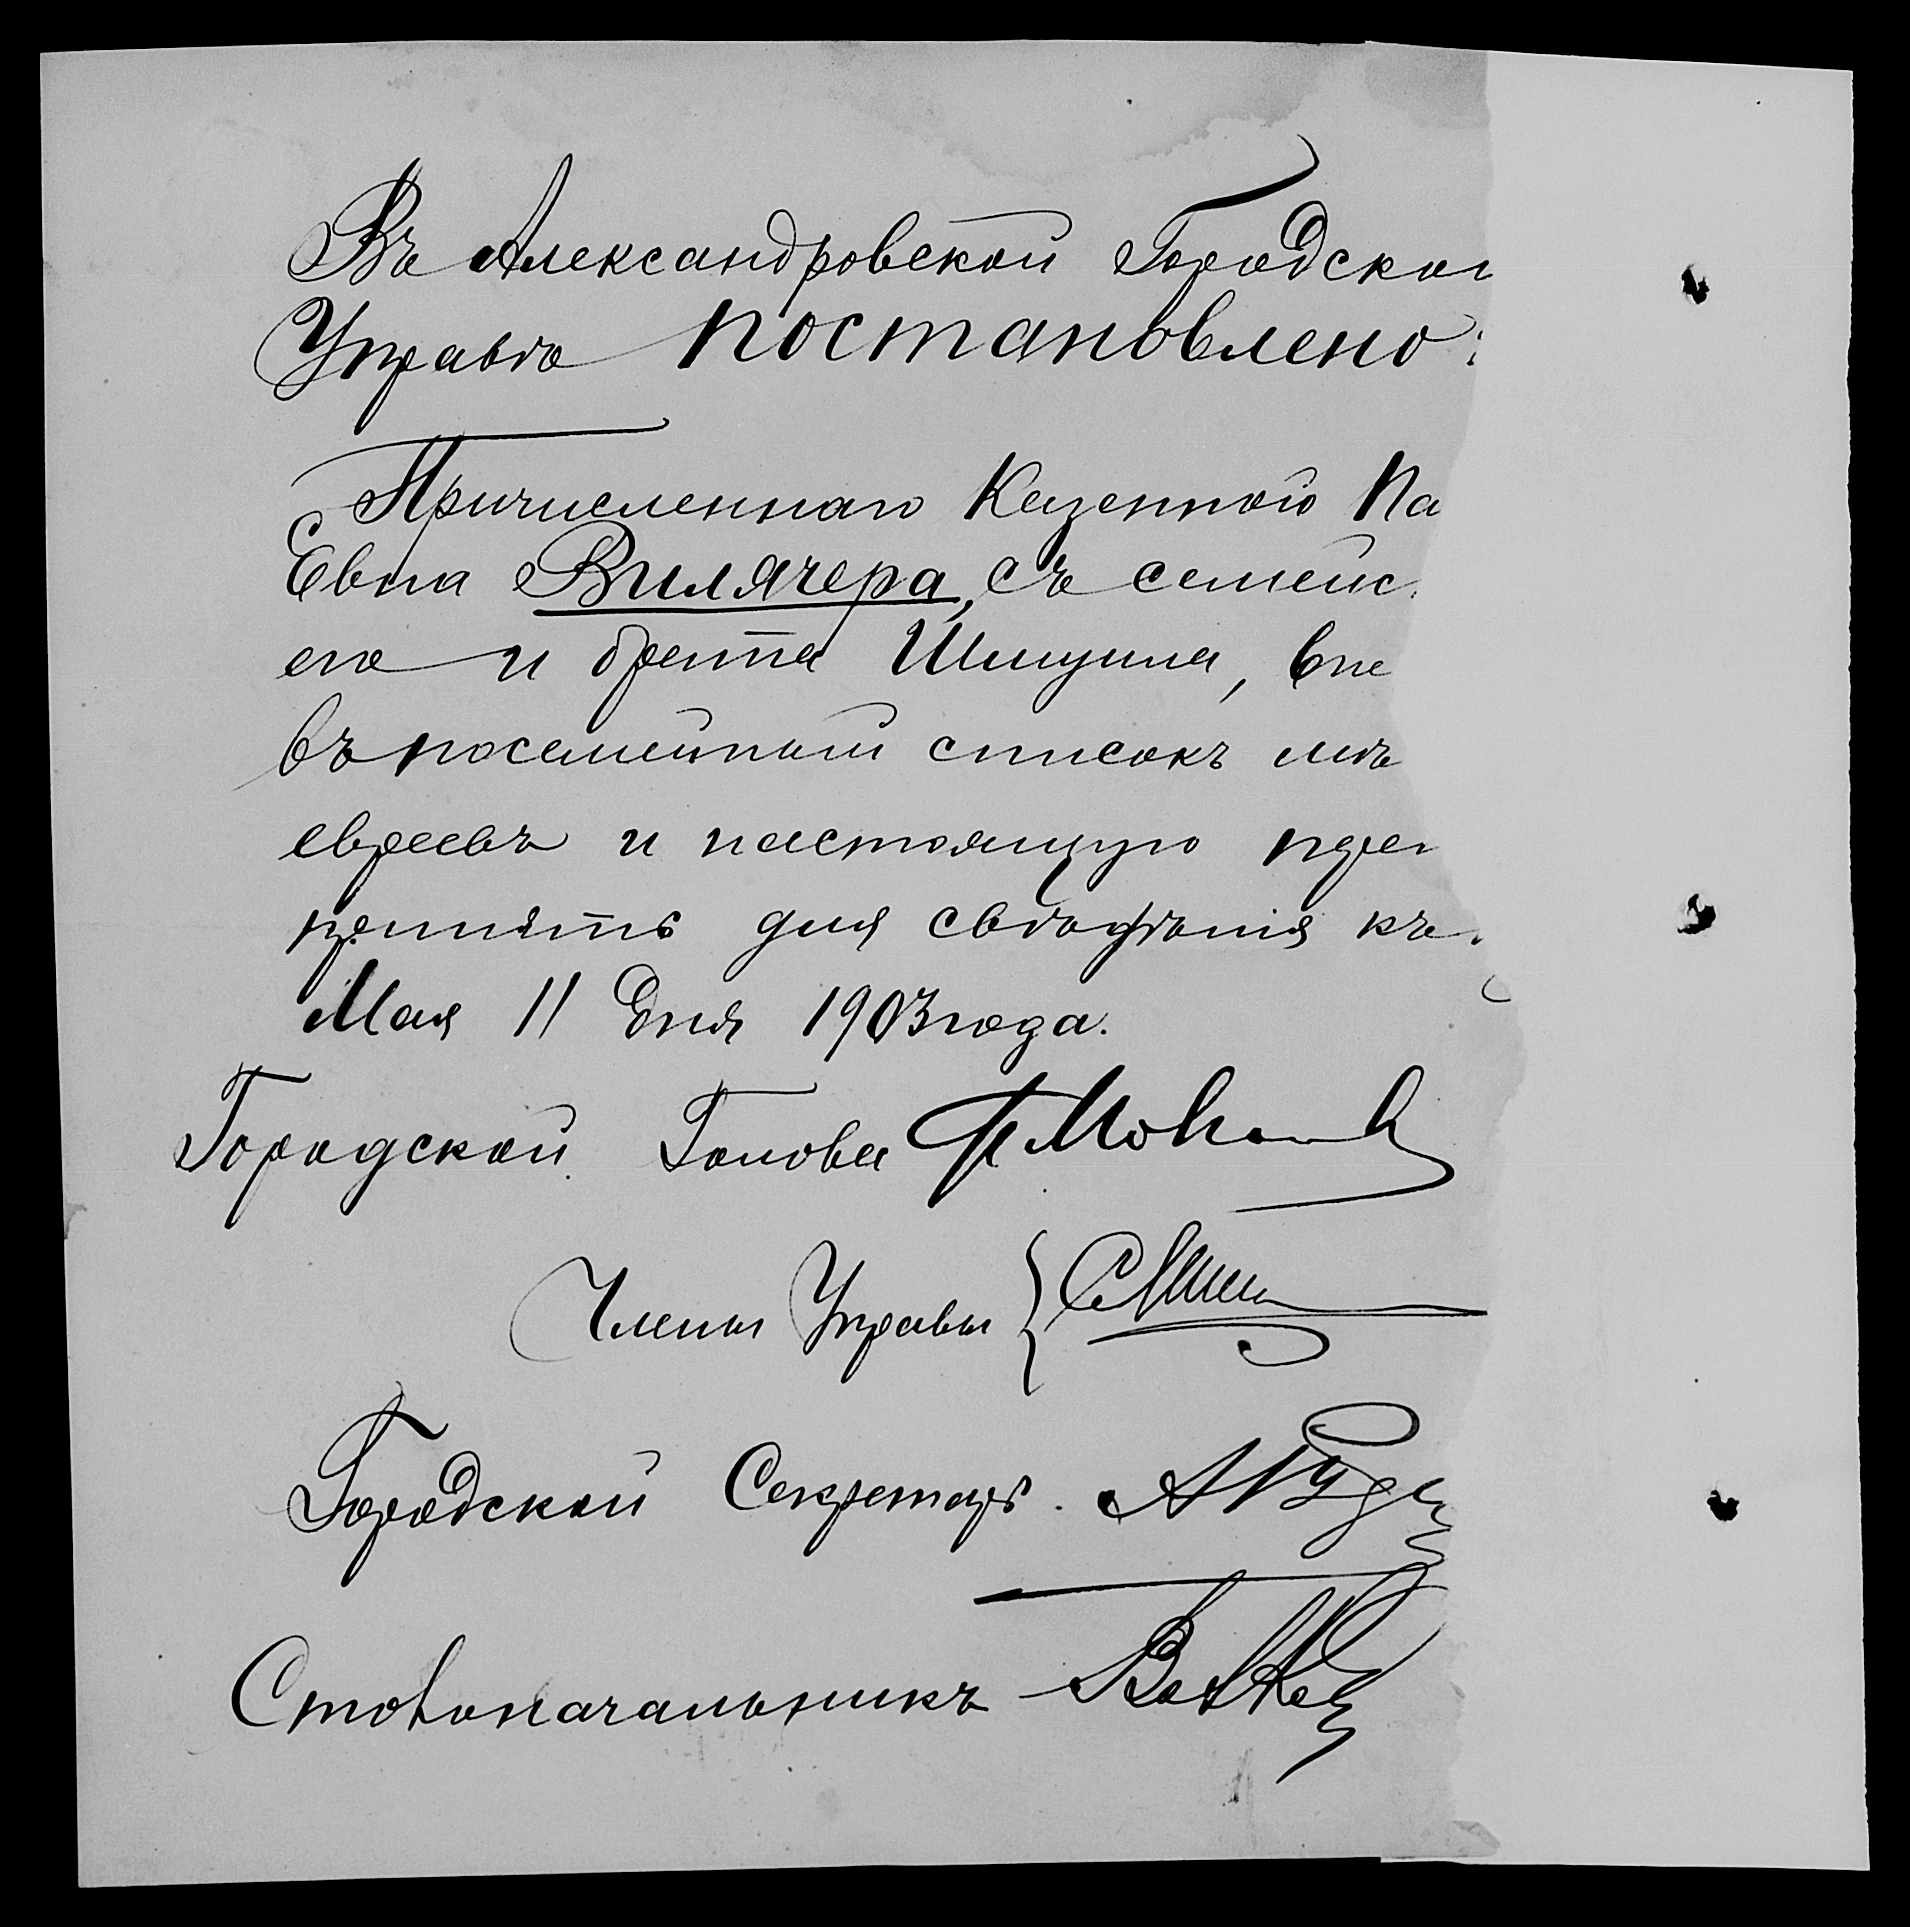 Въ Александровской Городской
Управѣ постановлено:
Причисленнаго Казенной Па
Евна Вилячера, съ семейс
его и брата Шмуила, вне
въ посемейный списокъ мѣ
евреевъ и настоящую пре
принять для свѣдѣнія къ
Мая 11 дня 1903 года.
Городской Голова
Члены Управы {
Городской Секретарь.
Столоначальникъ